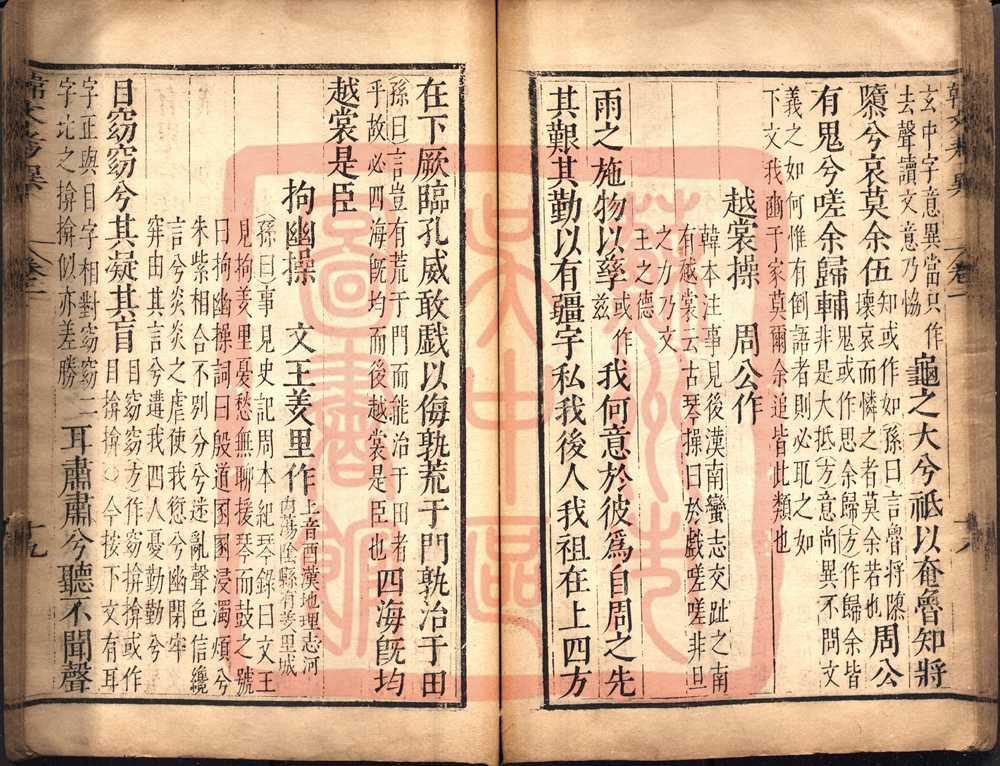 玄中字意異當只作
去聲讀文意乃恊
龜之大兮祇以奄魯知將
隳兮哀莫余伍
知或作如孫曰言魯將隳
壞哀而憐之者莫余若也
周公
有鬼兮嗟余歸輔
鬼或作思余歸(方)作歸余皆
非是大抵(方)意尚異不問文
義之如何惟有倒語者則必耴之如
下文我幽于家莫爾余追皆此類也
越裳操　周公作
韓本注事見後漢南蠻志交趾之南
有越裳云古琴操曰於戲嗟嗟非旦
之力乃文
王之德
雨之施物以孳
或作
兹
我何意於彼爲自周之先
其艱其勤以有疆宇私我後人我祖在上四方
在下厥臨孔威敢戲以侮孰荒于門孰治于田
(孫曰)言豈有荒于門而能治于田者
乎故必四海旣均而後越裳是臣也
四海旣均
越裳是臣
拘幽操　文王羑里作
上音酉漢地理志河
内蕩陰縣有羑里城
(孫曰)事見史記周本紀琴錄曰文王
見拘羑里憂愁無聊援琴而鼓之號
曰拘幽操詞曰殷道溷溷浸濁煩兮
朱紫相合不別分兮迷亂聲色信讒
言兮炎炎之虐使我愆兮幽閉牢
穽由其言兮遘我四人憂勤勤兮
目窈窈兮其凝其盲
目窈窈方作窈揜揜或作
目揜揜○今按下文有耳
字正與目字相對窈窈二
字比之揜揜似亦差勝
耳肅肅兮聽不聞聲
卷一
十九